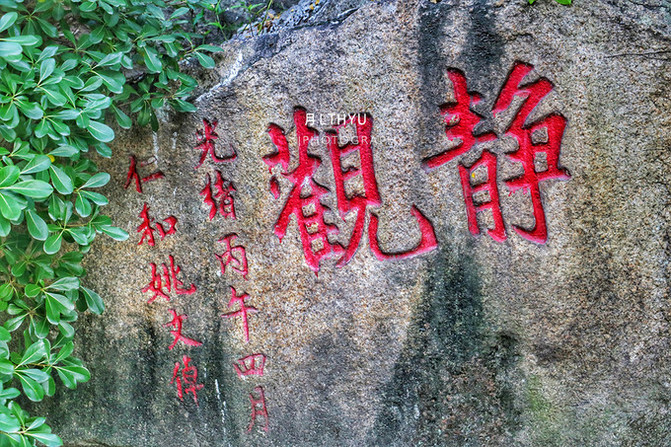 静觀
光绪丙午四月
仁和姚文倬
LTHYU
PHOTOGRAPHY